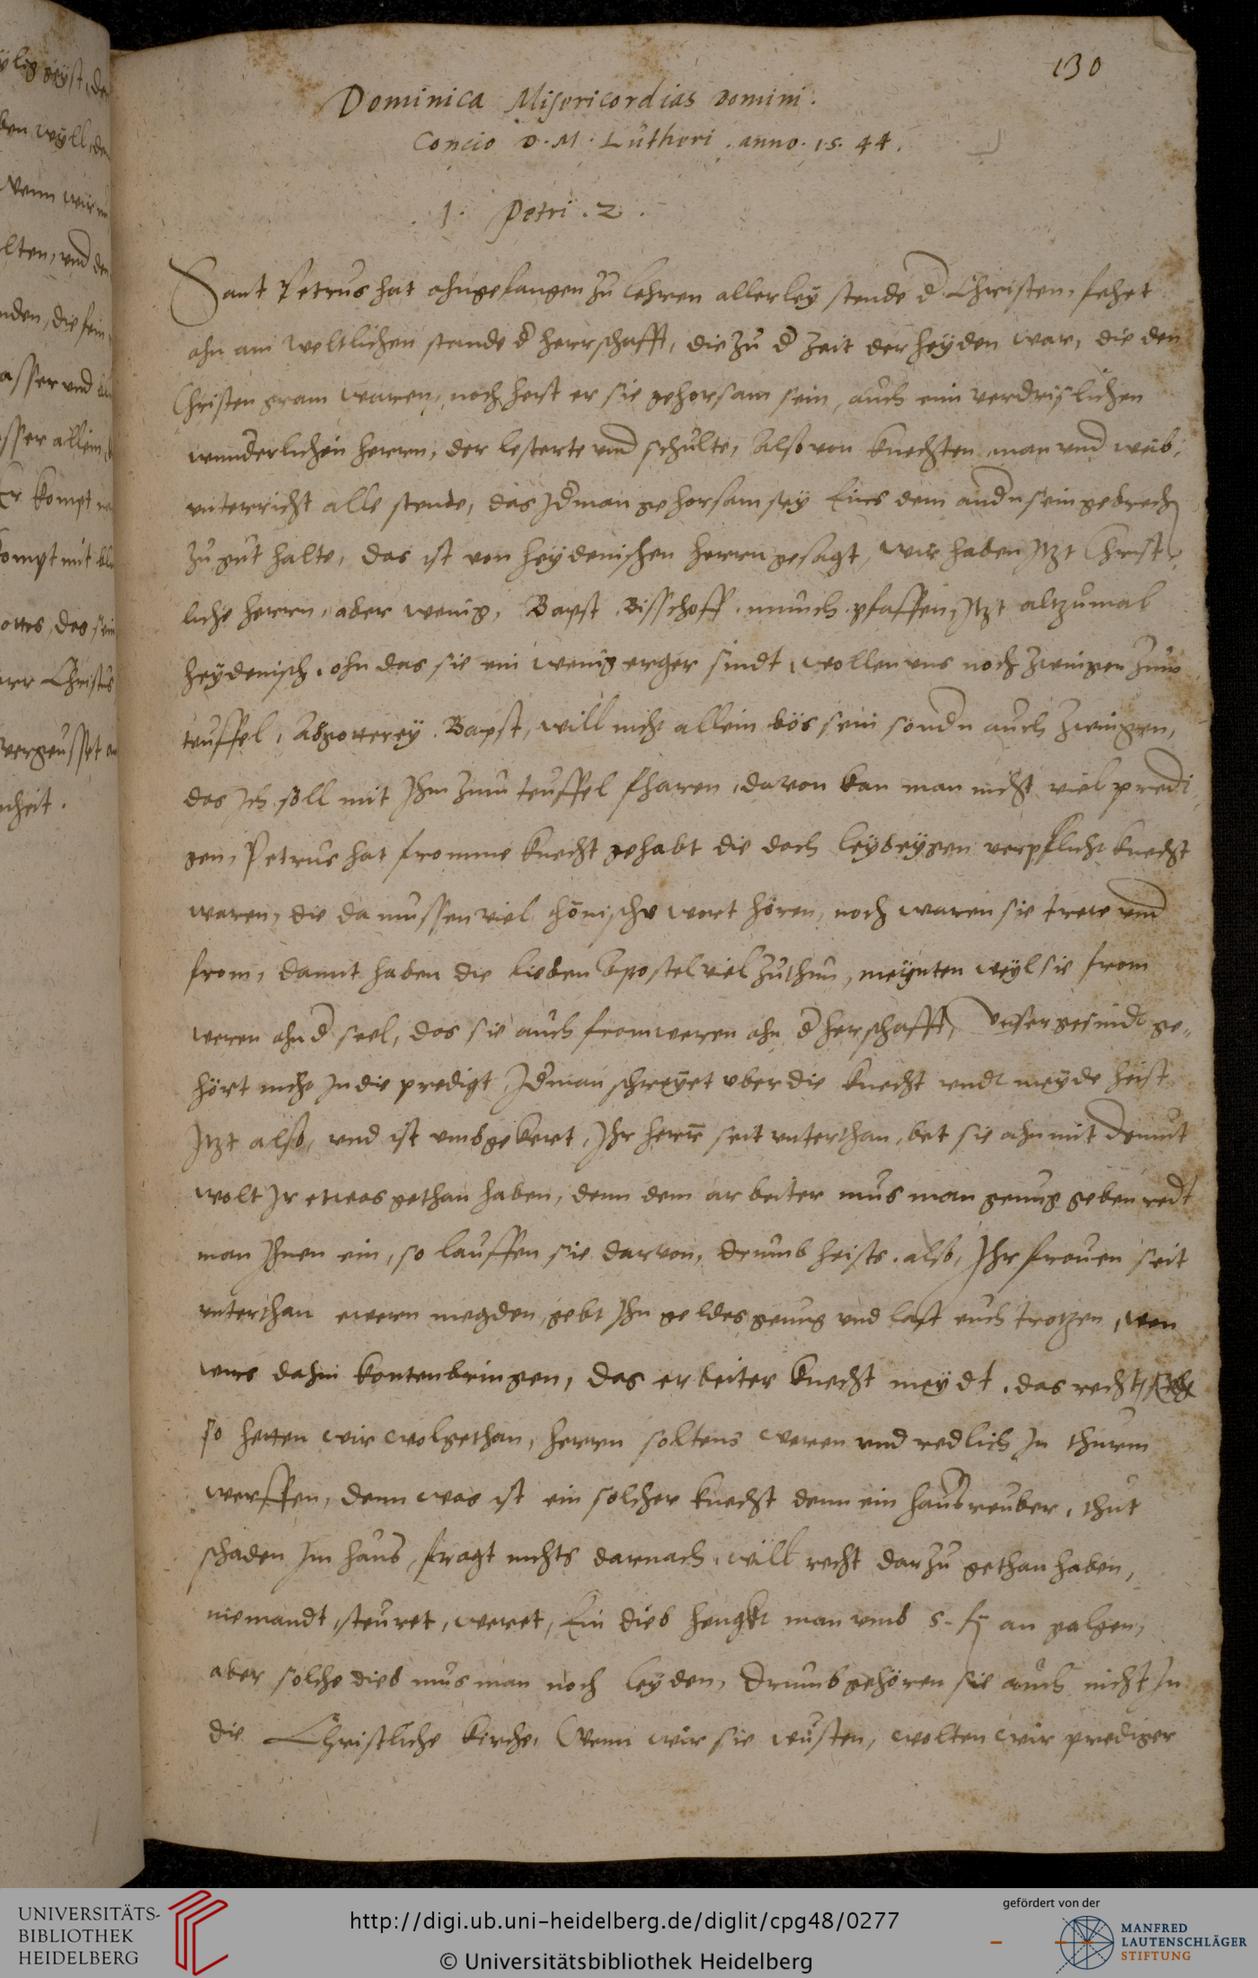 130
Dominica Misericordias Domini.
Concio D. M. Lutheri. anno. 15. 44.
1. Petri. 2.
Sant Petrus hat ahngefangen zu lehren allerley stende d Christen, fehet
ahn am weltlichen stande d herrschafft, die zu d Zeit der heyden war, die den
Christen gram waren, noch heist er sie gehorsam sein, auch eim verdrislichen
wunderlichen herrn, der lesterte und schulte, Also von knechten man und weib,
unterricht alle stende, das Idman gehorsam sey Eins dem andn sein gebrech
zu gut halte, das ist von heydenischen herrn gesagt, wir haben Itzt Christ,
liche herrn, aber wenig, Bapst Bisschoff munch pfaffen, Itzt altzumal
heydenisch, ohn das sie ein wenig erger sindt, wollen uns noch zwingen zum
teuffel, Abgotterey. Bapst, will nicht allein bös sein sondn auch zwingen,
das Ich soll mit Ihm zum teuffel fharen, davon kan man nicht viel predi
gen, Petrus hat fromme knecht gehabt die doch leybeygen verpflicht knecht
waren, die da mussen viel hönische wort hören, noch waren sie trew und
from, damit haben die lieben Apostel viel zuthun, meynten weyl sie from
weren ahn d seel, das sie auch from weren ahn d herschafft, Unser gesindt ge-
hört nicht In die predigt, Idman schreyet uber die knecht undt meyde heist
Itzt also, und ist umbgekert, Ihr herrn seit unterthan, bet sie ahn mit demut
wolt Ir etwas gethan haben, denn dem arbeiter mus man genug geben redt
man Ihnen ein, so lauffen sie darvon, drumb heists also, Ihr frauen seit
unterthan ewern megden, gebt Ihn geldes genug und last euch trotzen, wen
wirs dahin konten bringen, das erbeiter knecht meydt, das recht
so hetten wir wolgethan, herrn soltens weren und redlich In thurm
werffen, denn was ist ein solcher knecht denn ein hausreuber, thut
schaden Im haus, fragt nichts darnach, will recht darzu gethan haben,
niemandt, steuret, weret, Ein dieb hengkt man umb 5. fl an galgen,
aber solche dieb mus man noch leyden, drumb gehören sie auch nicht In
die Christliche kirche, Wenn wir sie wüsten, wolten wir prediger
UNIVERSITÄTS-
BIBLIOTHEK
HEIDELBERG
http://digi.ub.uni-heidelberg.de/diglit/cpg48/0277
© Universitätsbibliothek Heidelberg
gefördert von der
MANFRED
LAUTENSCHLÄGER
STIFTUNG